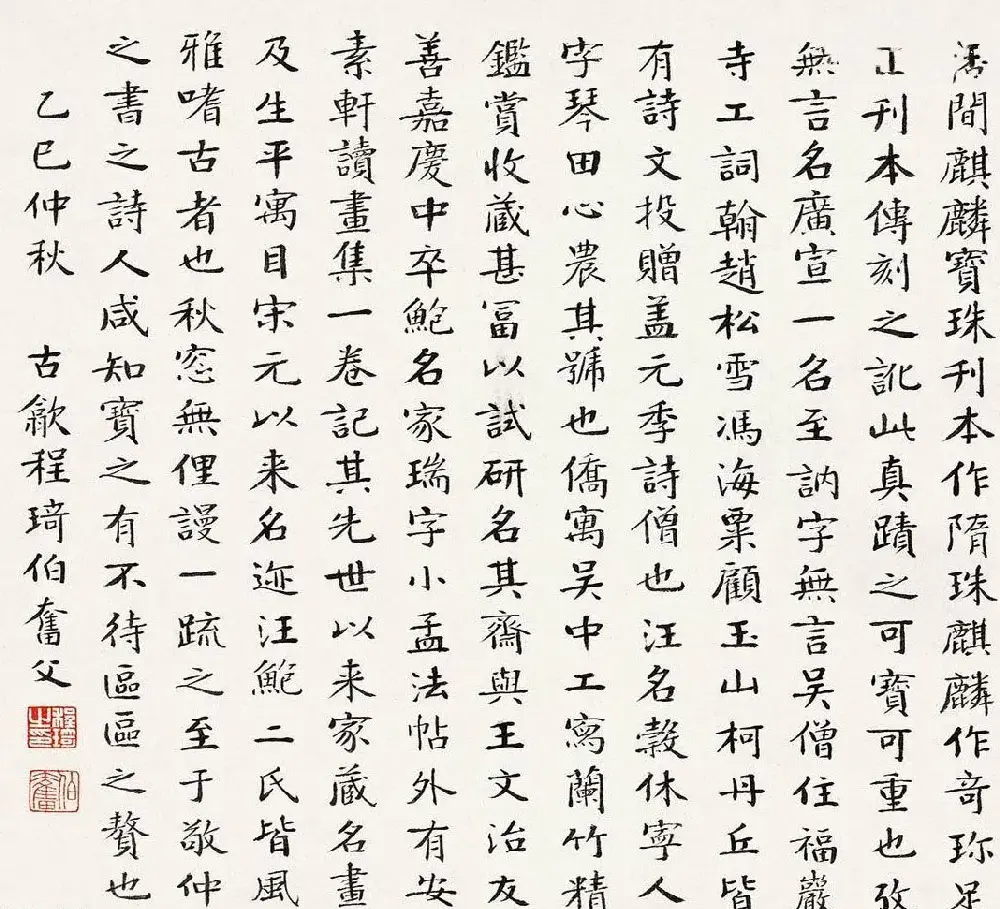 間麒麟寶珠刊本作隋珠麒麟作奇珎足
正刊本傳刻之訛此真蹟之可寶可重也攷
無言名廣宣一名至訥字無言吳僧住福巖
寺工詞翰趙松雪馮海粟顧玉山柯丹丘皆
有詩文投贈盖元季詩僧也汪名穀休寧人
字琴田心農其號也僑寓吳中工寫蘭竹精
鑑賞收藏甚富以試研名其齋與王文治友
善嘉慶中卒鮑名家瑞字小孟法帖外有安
素軒讀畫集一卷記其先世以来家藏名畫
及生平寓目宋元以来名迹汪鮑二氏皆風
雅嗜古者也秋窓無俚謾一疏之至于敬仲
之書之詩人咸知寶之有不待區區之贅也
乙巳仲秋 古歙程琦伯奮父
程琦之印
伯奮